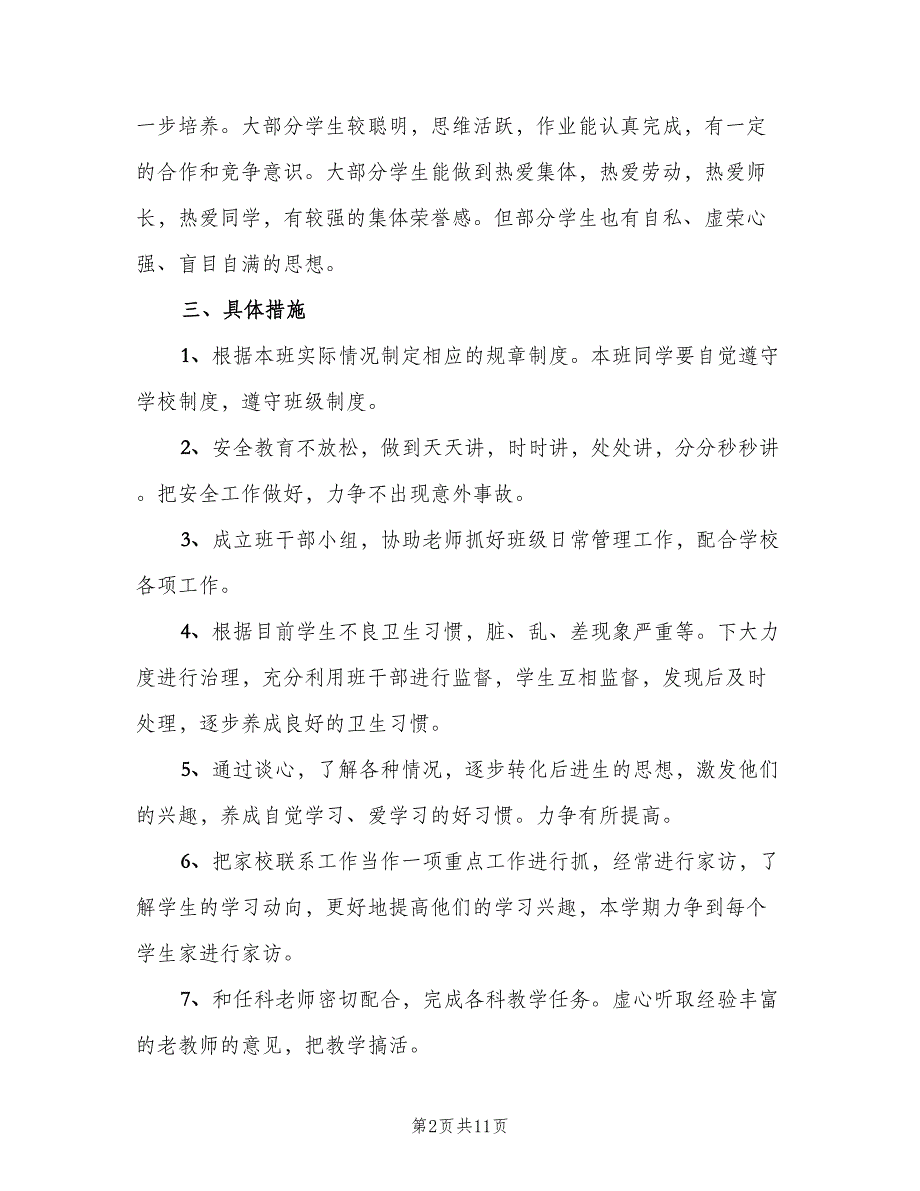 一步培养。大部分学生较聪明，思维活跃，作业能认真完成，有一定
的合作和竞争意识。大部分学生能做到热爱集体，热爱劳动，热爱师
长，热爱同学，有较强的集体荣誉感。但部分学生也有自私、虚荣心
强、盲目自满的思想。
三、具体措施
1、根据本班实际情况制定相应的规章制度。本班同学要自觉遵守
学校制度，遵守班级制度。
2、安全教育不放松，做到天天讲，时时讲，处处讲，分分秒秒讲
。把安全工作做好，力争不出现意外事故。
3、成立班干部小组，协助老师抓好班级日常管理工作，配合学校
各项工作。
4、根据目前学生不良卫生习惯，脏、乱、差现象严重等。下大力
度进行治理，充分利用班干部进行监督，学生互相监督，发现后及时
处理，逐步养成良好的卫生习惯。
5、通过谈心，了解各种情况，逐步转化后进生的思想，激发他们
的兴趣，养成自觉学习、爱学习的好习惯。力争有所提高。
6、把家校联系工作当作一项重点工作进行抓，经常进行家访，了
解学生的学习动向，更好地提高他们的学习兴趣，本学期力争到每个
学生家进行家访。
7、和任科老师密切配合，完成各科教学任务。虚心听取经验丰富
的老教师的意见，把教学搞活。
第2页共11页